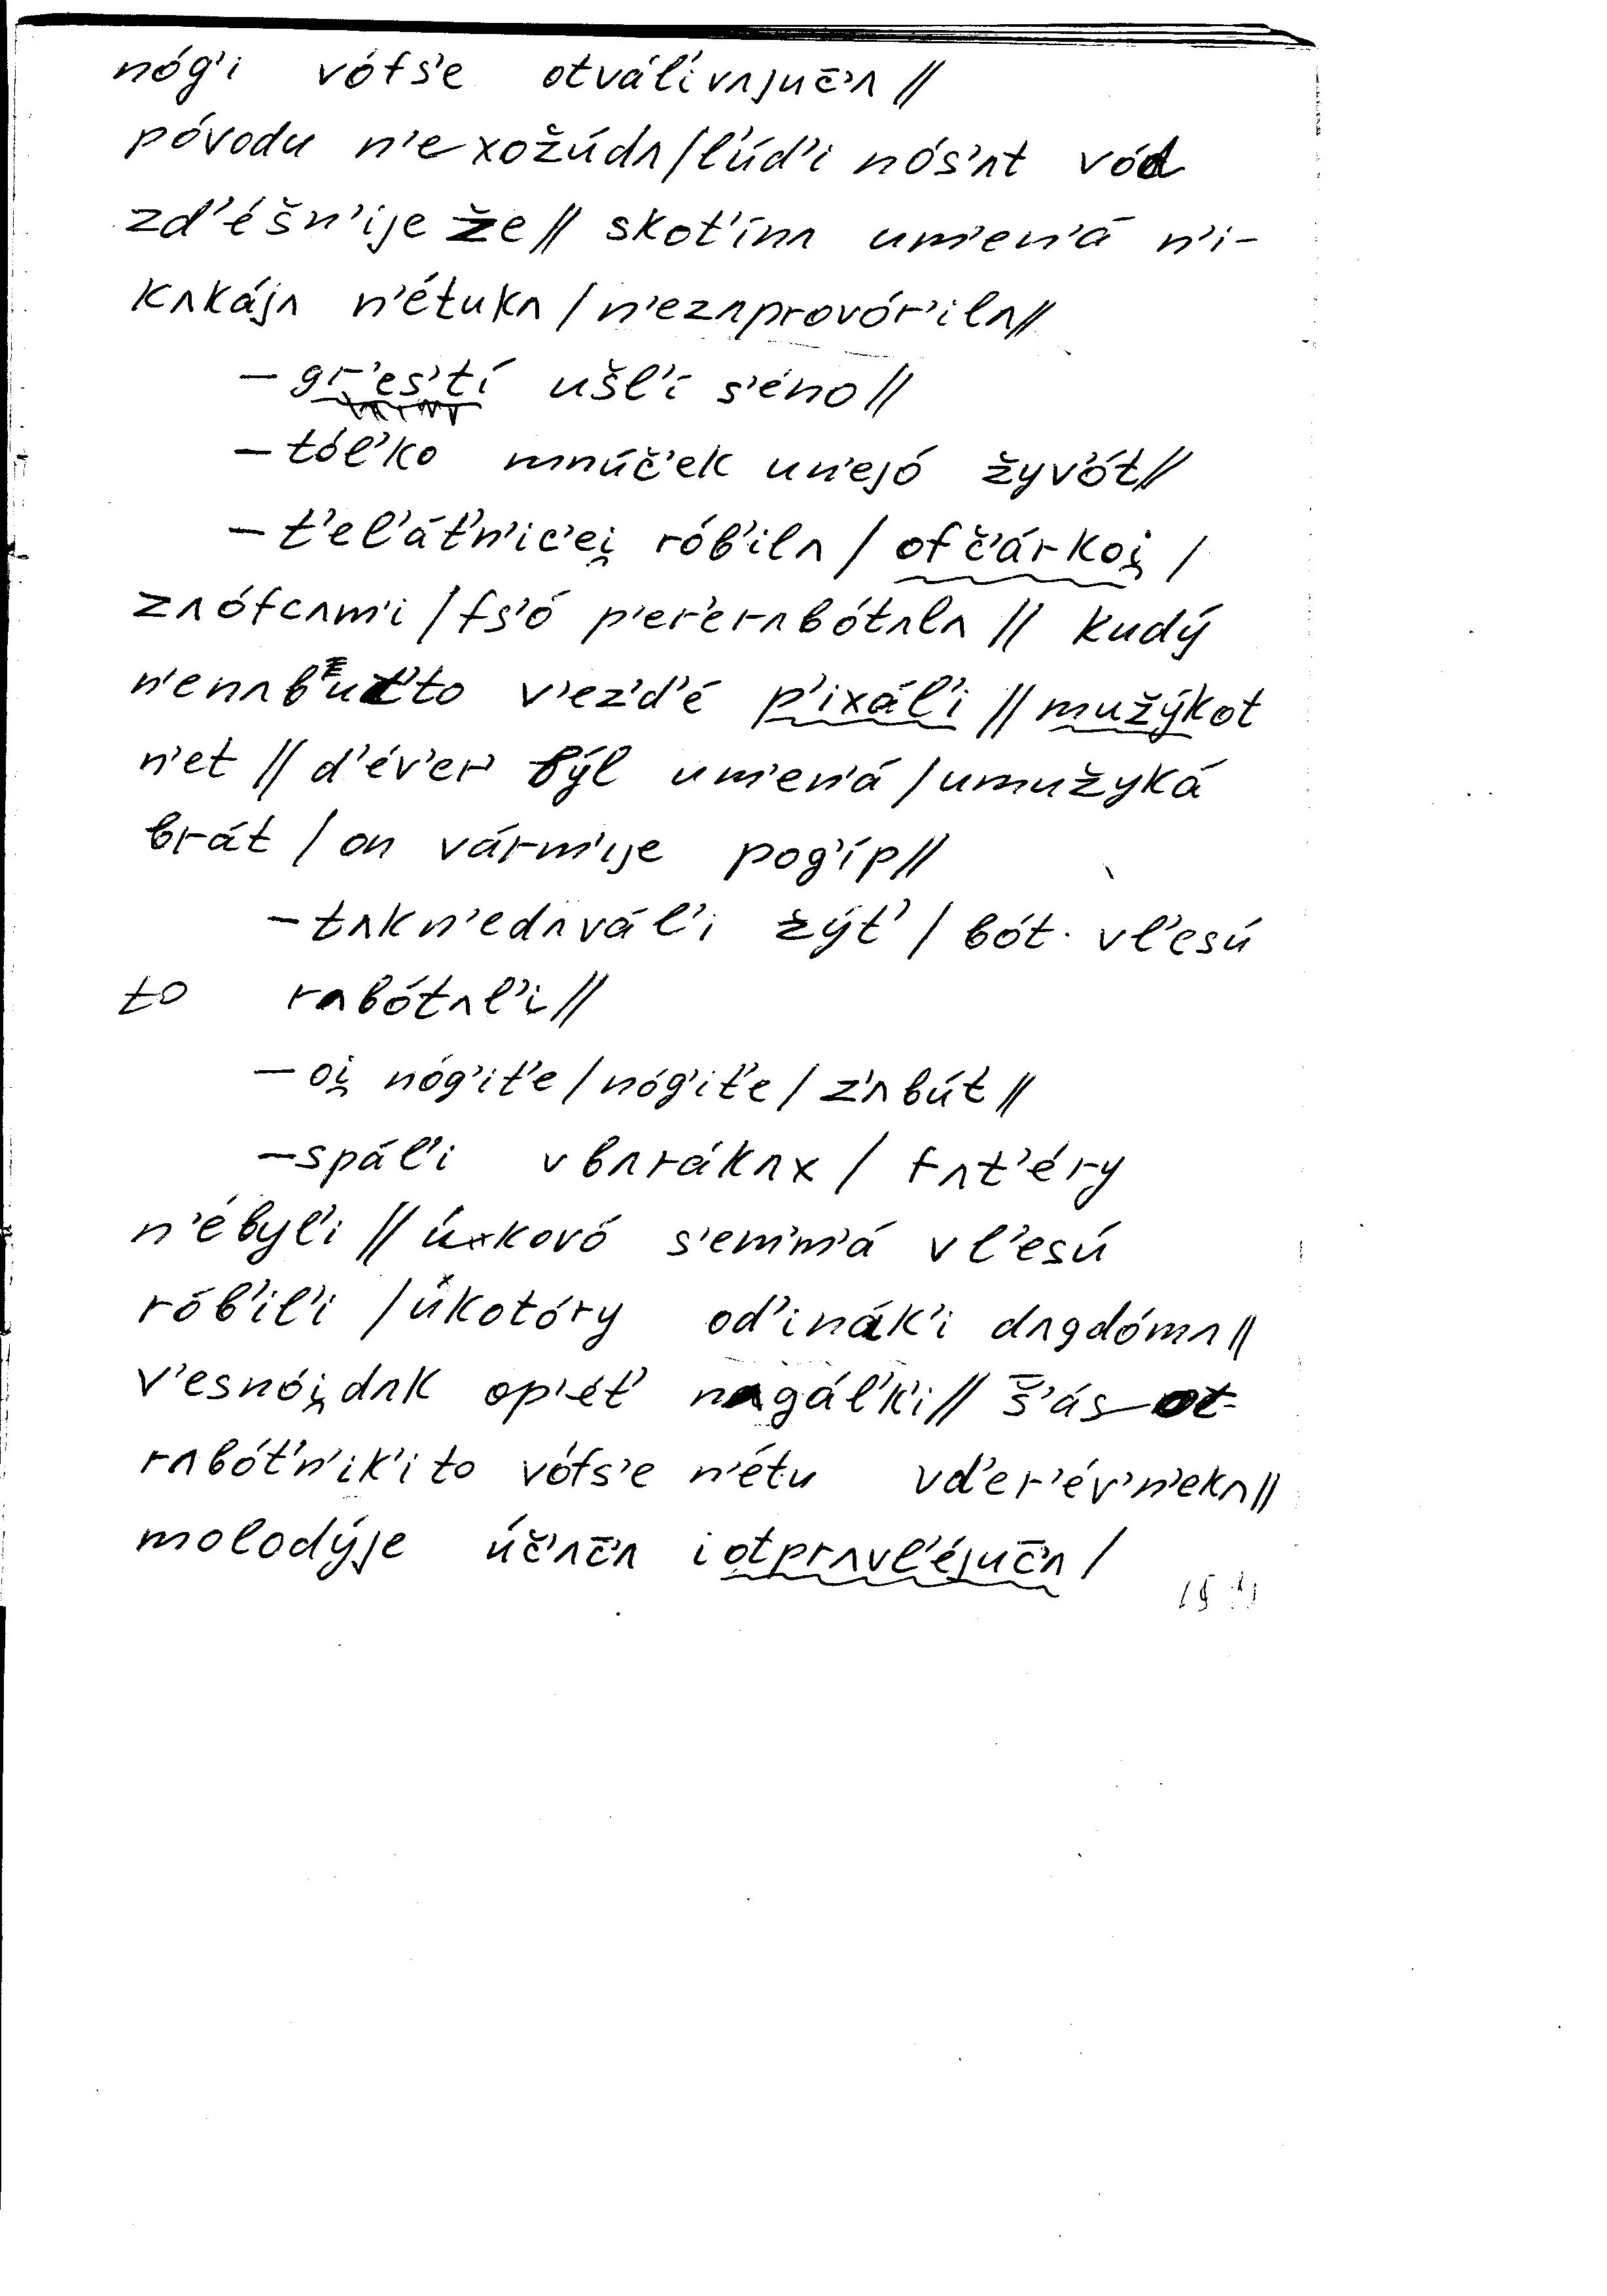 nóg’i vófs’e otvál’ivʌjuč̄’ʌ //
póvodu n’e xožúdʌ / l’úd’i nós’ʌt vód
zd’éšn’ije že // skot’ínʌ um’en’á n’i-
kʌkájʌ n’étukʌ / n’ezʌprovór’ilʌ //
– gr’es’t’í ušl’í s’éno //
– tól’ko mnúč’ek un’ejó žyv’ót //
– t’el’át’n’ic’ei̯ rób’ilʌ / ofč’árkoi̯ /
zʌófcʌm’i / fs’ó p’er’erʌbótʌlʌ // kudý
n’enʌb’ut’to v’ez’d’é p’ixál’i // mužýkot
n’et // d’év’er’ býl um’en’á / umužyká
brát / on várm’ije pog’íp //
– tʌkn’edʌvál’i žýt’ / bót. vl’esú
to rʌbótʌl’i //
– oi̯ nóg’it’e / nóg’it’e / z’ʌbút //
– spál’i vbʌrákʌx / fʌt’éry
n’ébyl’i // úxkovó s’em’m’á vl’esú
rób’il’i / úkotóry od’inák’i dʌgdómʌ //
v’esnói̯dʌk op’ét’ nʌgál’k’i // š̄’ás
rʌbót’n’ik’ito vófs’e n’étu vd’er’év’n’ekʌ //
molodýje úč’ʌč̄’ʌ iotprʌvl’éjuč̄’ʌ /